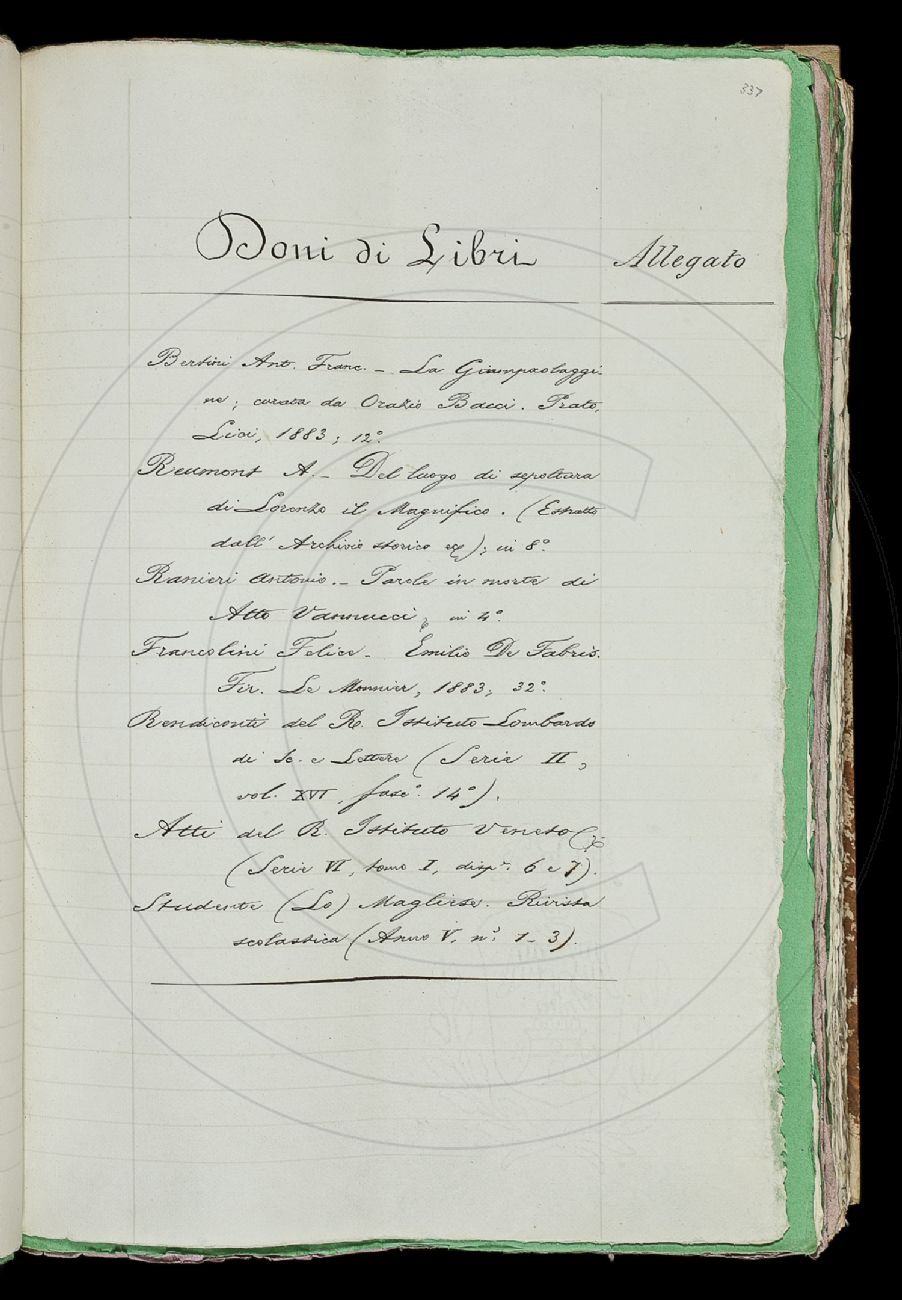 337
Doni di Libri
Allegato
Bertini Ant. Franc. - La Giampaolaggi-
ne; curata da Orazio Bacci. Prato,
Lici, 1883; 12°.
Reumont A. - Del luogo di sepoltura
di Lorenzo il Magnifico. (Estratto
dall' Archivio storico ec); in 8°.
Ranieri Antonio. - Parole in morte di
Atto Vannucci; in 4°.
Francolini Felice - Emilio De Fabris.
Fir. Le Monnier, 1883; 32°.
Rendiconti del R. Istituto Lombardo
di Sc. e Lettere (Serie II,
vol. XVI, fasc°. 14°).
Atti del R. Istituto Veneto
(Serie VI, tomo I, disp. 6 e 7).
Studente (Lo) Magliese. Rivista
scolastica (Anno V, n. 1-3).